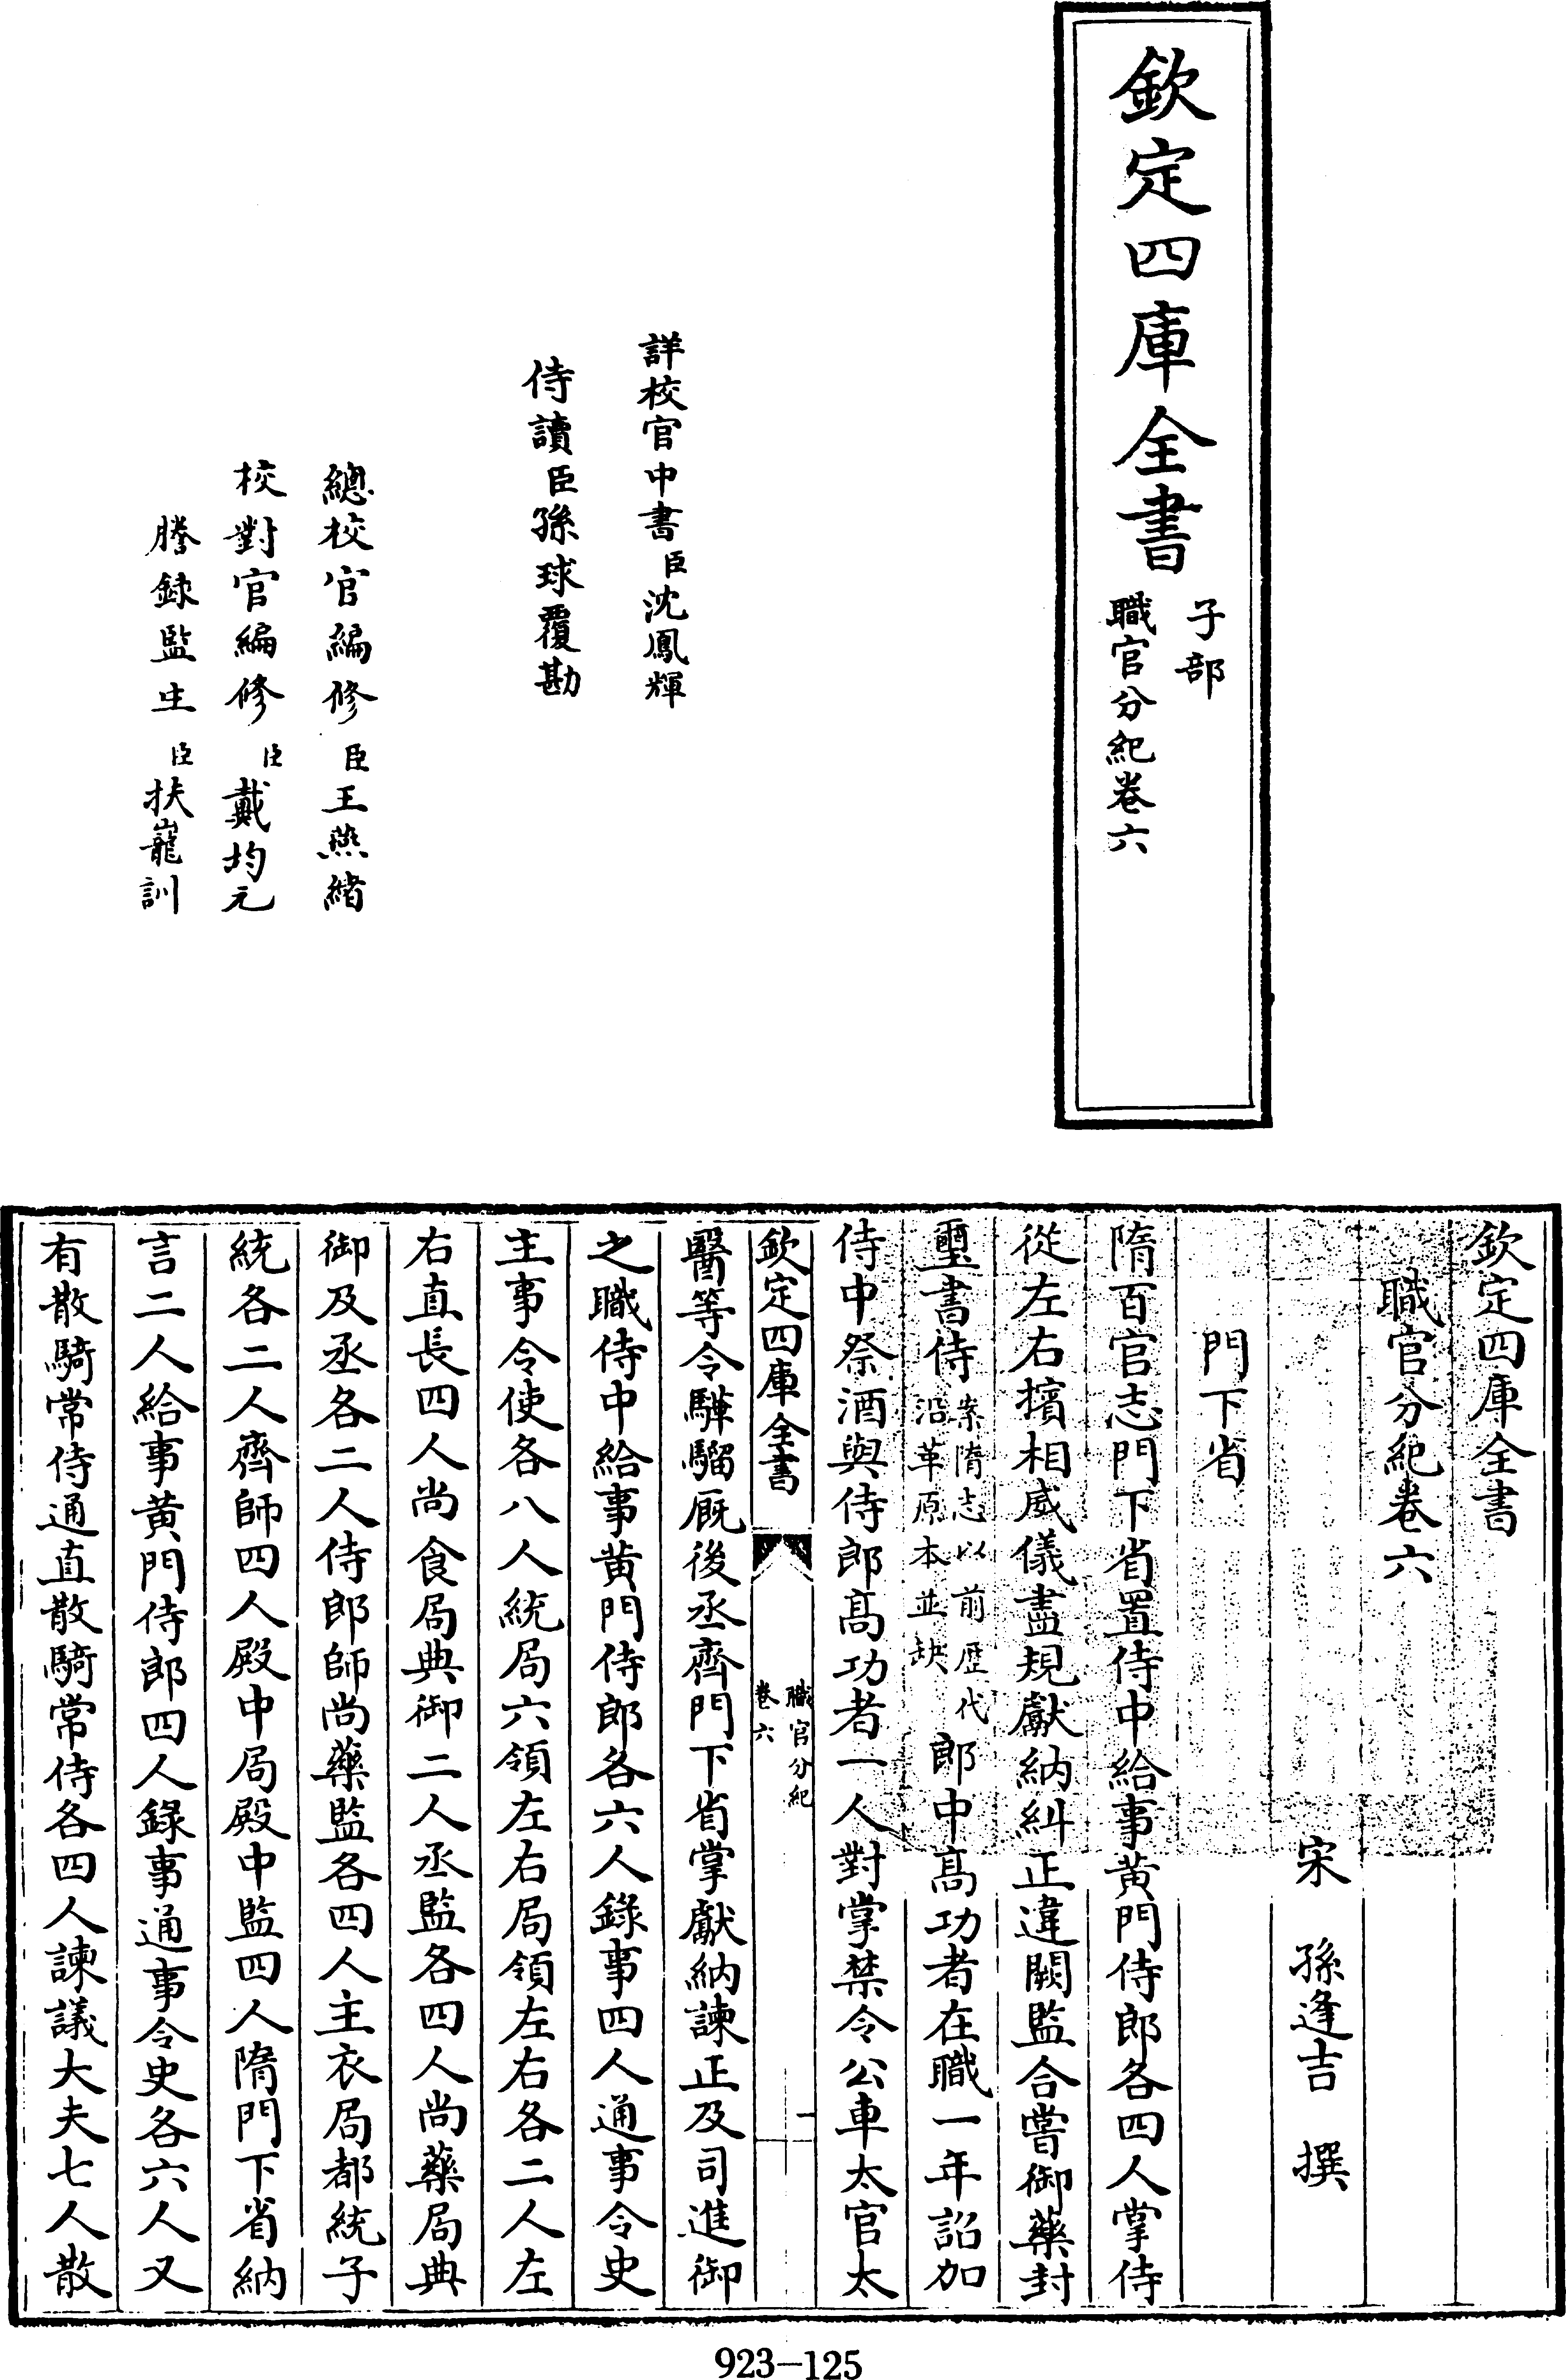 欽定四庫全書
子部
職官分紀卷六
詳校官中書臣沈鳳輝
侍讀臣孫球覆勘
總校官編修臣王燕緒
校對官編修臣戴均元
謄錄監生臣扶寵訓
欽定四庫全書
職官分紀卷六
宋 孫逢吉 撰
門下省
隋百官志門下省置侍中給事黄門侍郎各四人掌侍
從左右擯相威儀盡規獻納糾正違闕監合嘗御藥封
璽書侍案隋志以前歷代沿革原本並缺郎中髙功者在職一年詔加
侍中祭酒與侍郎髙功者一人對掌禁令公車太官太
欽定四庫全書
職官分紀
卷六
一
醫等令驊騮廐後丞齊門下省掌獻納諫正及司進御
之職侍中給事黄門侍郎各六人錄事四人通事令史
主事令使各八人統局六領左右局領左右各二人左
右直長四人尚食局典御二人丞監各四人尚藥局典
御及丞各二人侍郎師尚藥監各四人主衣局都統子
統各二人齊師四人殿中局殿中監四人隋門下省納
言二人給事黄門侍郎四人錄事通事令史各六人又
有散騎常侍通直散騎常侍各四人諫議大夫七人散
923-125